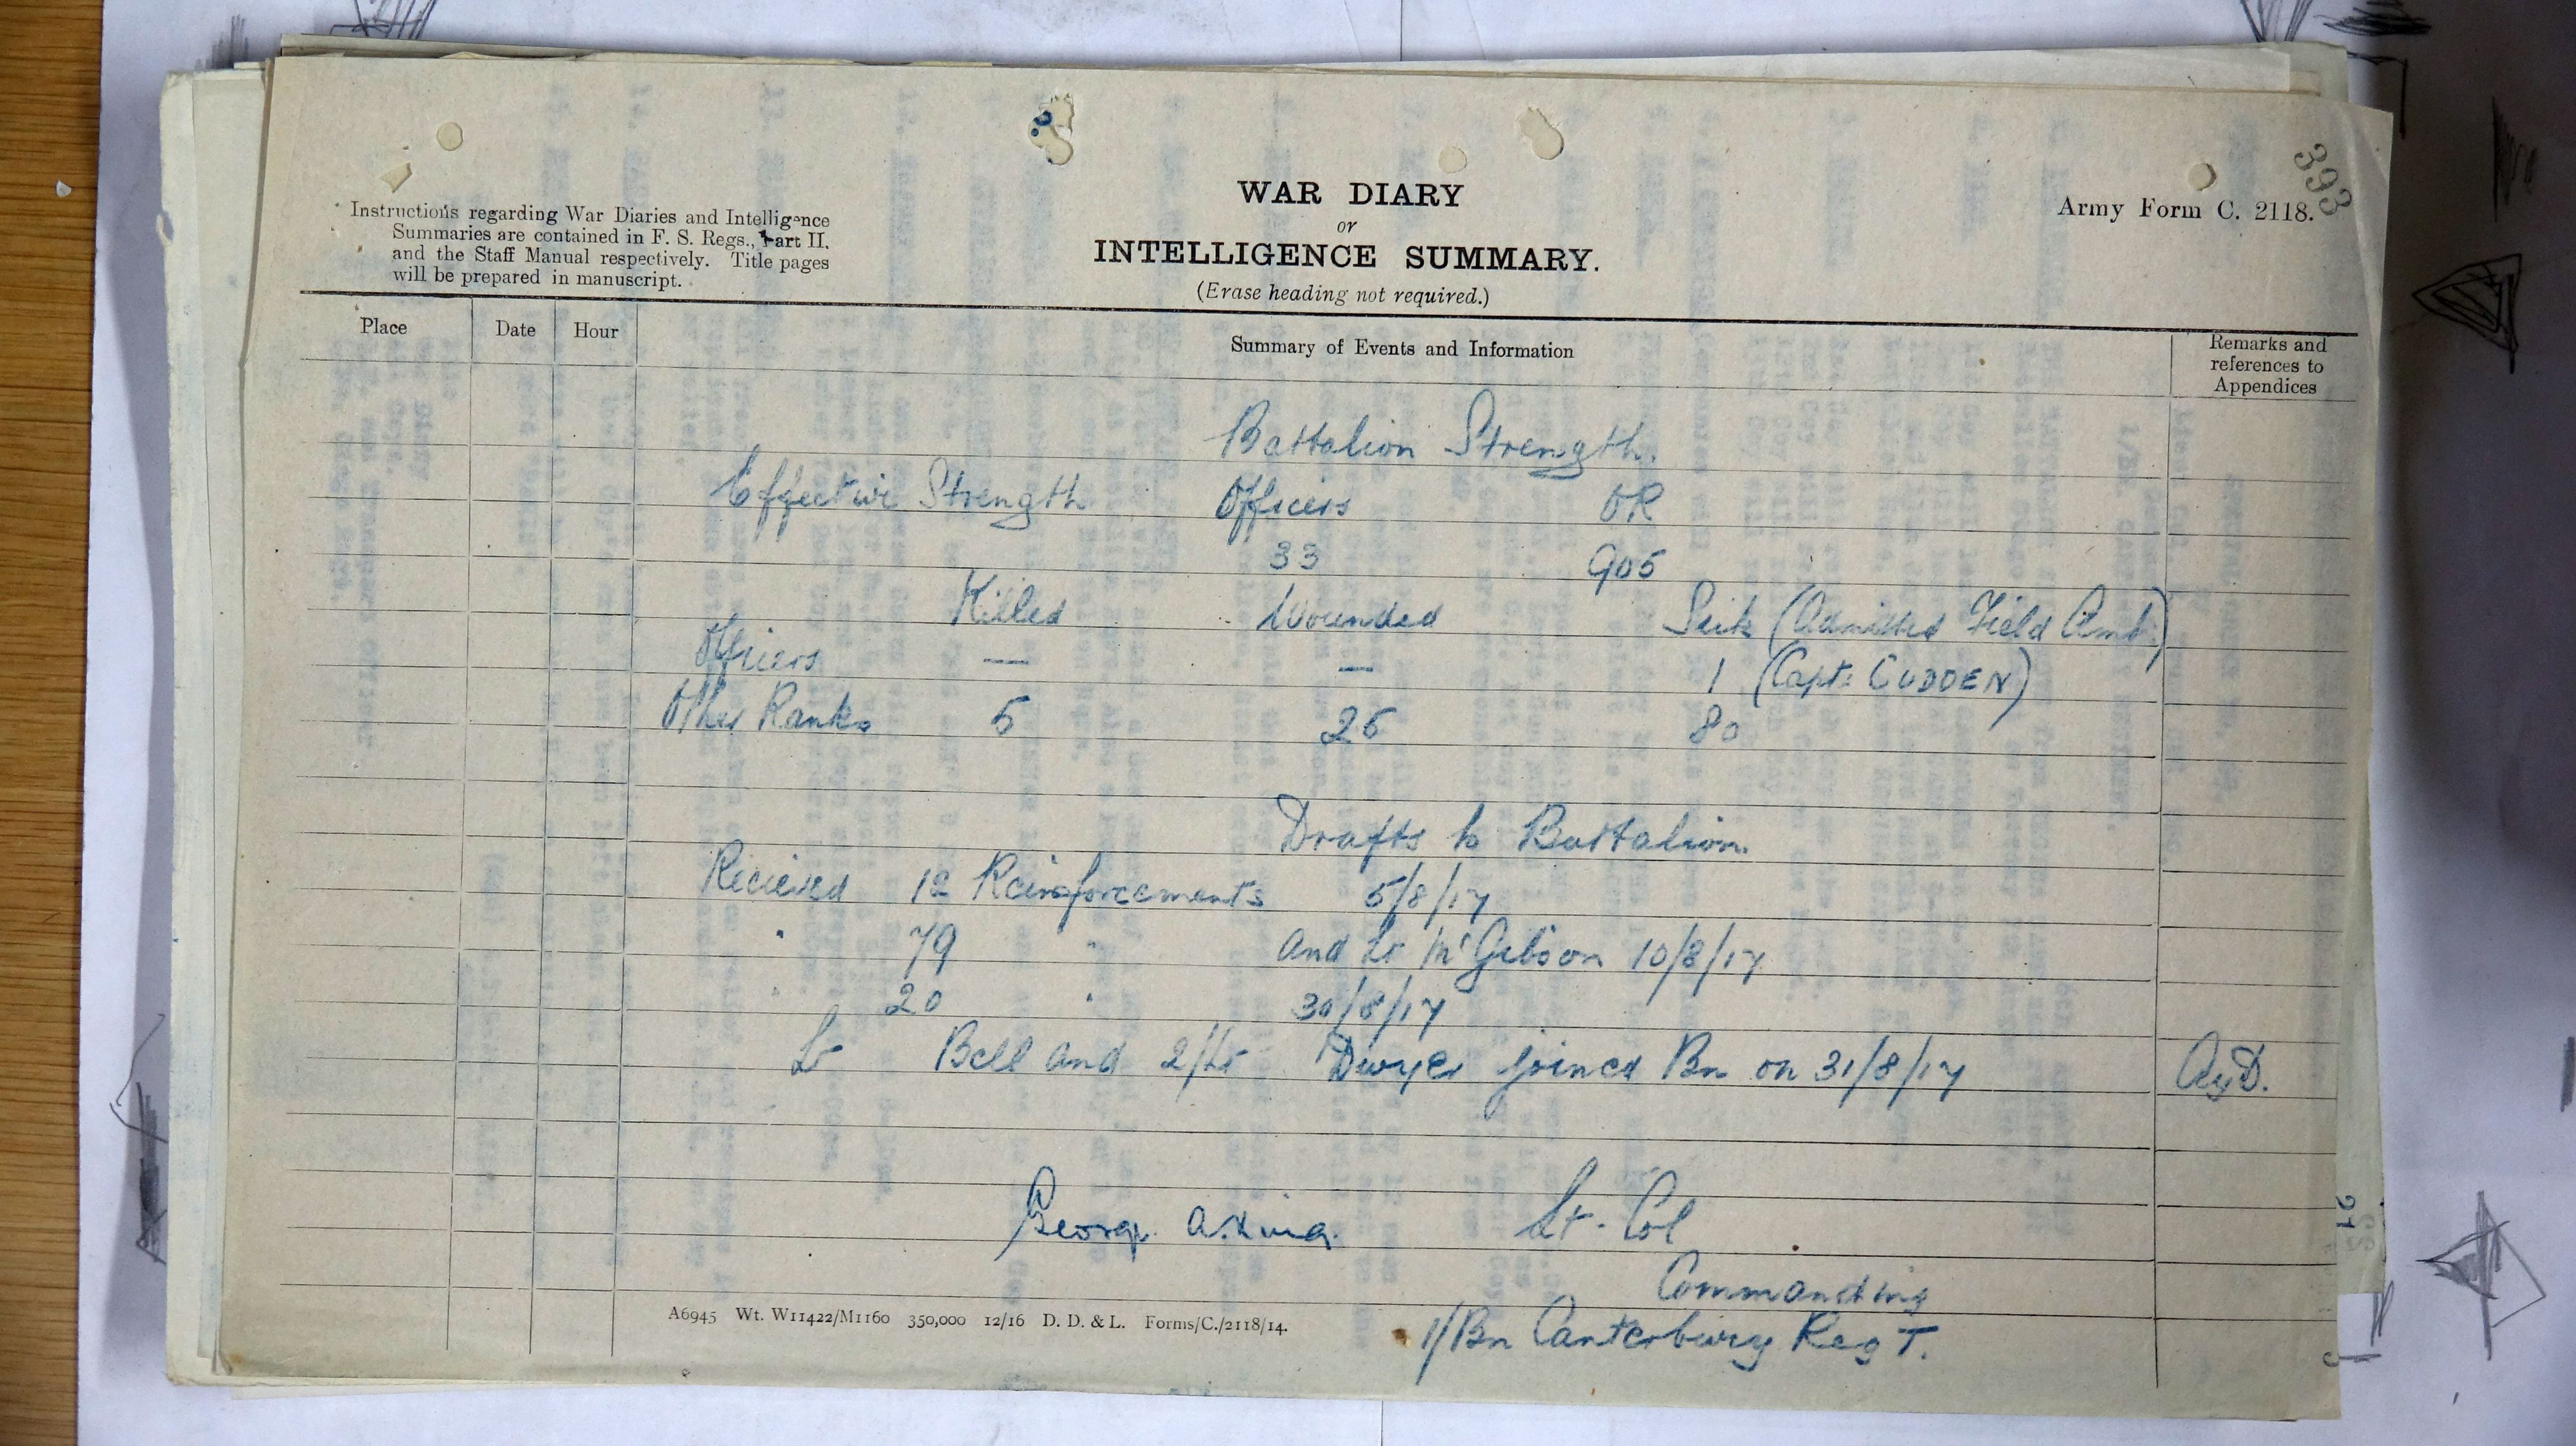 393
WAR DIARY
or
INTELLIGENCE SUMMARY.
(Erase heading not required.)
Army Form C. 2118.
Instructions regarding War Diaries and Intelligence
Summaries are contained in F. S. Regs., Part II.
and the Staff Manual respectively. Title pages
will be prepared in manuscript.
Place Date Hour Summary of Events and Information Remarks and references to Appendices
Battalion Strength.
Effective Strength Officers OR
33 905
Killed Wounded Sick (Admitted Field Amb.)
Officers — — 1 (Capt. CUDDEN)
Other Ranks 5 25 80
Drafts to Battalion.
Recieved 12 Reinforcements 5/8/17
" 79 " and Lt McGibbon 10/8/17
" 20 " 30/8/17
Lt Bell and 2/Lt Dwyer joined Bn on 31/8/17
George A. King. Lt. Col
Commanding
1/Bn Canterbury RegT.
A6945 Wt. W11422/M1160 350,000 12/16 D. D. & L. Forms/C./2118/14.